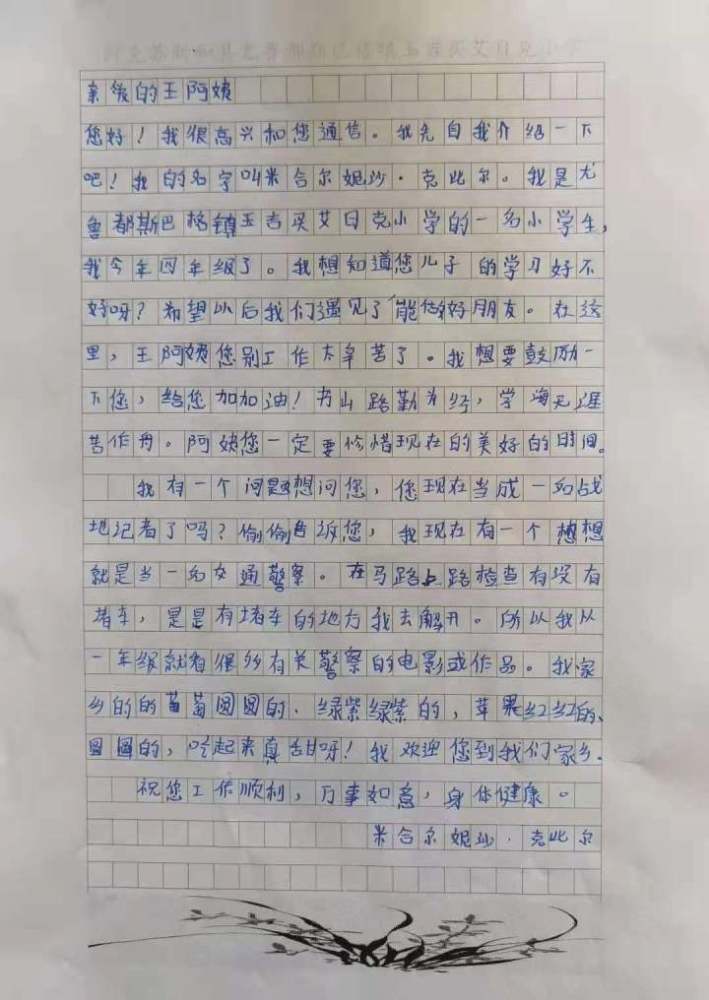 亲爱的王阿姨
您好！我很高兴和您通信。我先自我介绍一下
吧！我的名字叫米合尔妮沙·克比尔。我是尤
鲁都斯巴格镇玉吉买艾日克小学的一名小学生，
我今年四年级了。我想知道您儿子的学习好不
好呀？希望以后我们遇见了能做好朋友。在这
里，王阿姨您别工作太辛苦了。我想要鼓励一
下您，给您加加油！书山路勤为径，学海无涯
苦作舟。阿姨您一定要珍惜现在的美好的时间。
我有一个问题想问您，您现在当成一名战
地记者了吗？偷偷告诉您，我现在有一个想想
就是当一名交通警察。在马路上路检查有没有
堵车，是是有堵车的地方我去解开。所以我从
一年级就看很多有关警察的电影或作品。我家
乡的的葡萄圆圆的、绿紫绿紫的，苹果红红的、
圆圆的，吃起来真甜呀！我欢迎您到我们家乡.
祝您工作顺利，万事如意，身体健康。
米合尔妮沙·克比尔